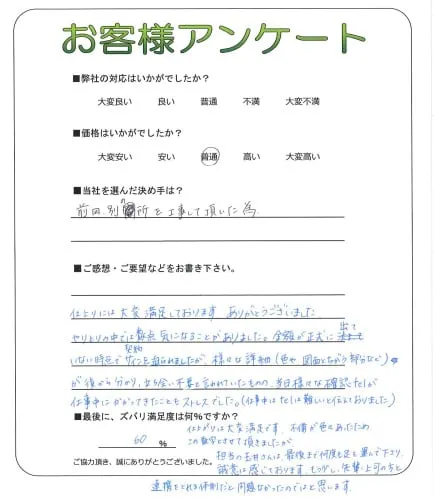 お客様アンケート
■弊社の対応はいかがでしたか？
大変良い 良い 普通 不満 大変不満
■価格はいかがでしたか？
大変安い 安い 普通 高い 大変高い
■当社を選んだ決め手は？
前回、別の箇所を工事して頂いた為
■ご感想・ご要望などをお書き下さい。
仕上りには大変満足しております ありがとうございました
やりとりの中では数点気になることがありました。金額が正式に出て
いない時点で契約サインを迫られましたが、様々な詳細（色や図面とちがう部分など）
が後から分かり、立ち会い不要と言われていたものの、当日様々な確認telが
仕事中にかかってきたこともストレスでした。（仕事中はtelは難しいと伝えておりました）
■最後に、ズバリ満足度は何％ですか？
60 %
仕上りは大変満足です、不備が色々あったため
この数字とさせて頂きましたが
担当の玉井さんは、最後まで何度も足を運んで下さり、
ご協力頂き、誠にありがとうございました。
誠意は感じております もう少し、先輩、上司の方と
連携をとれる体制だと問題なかったのではと思います